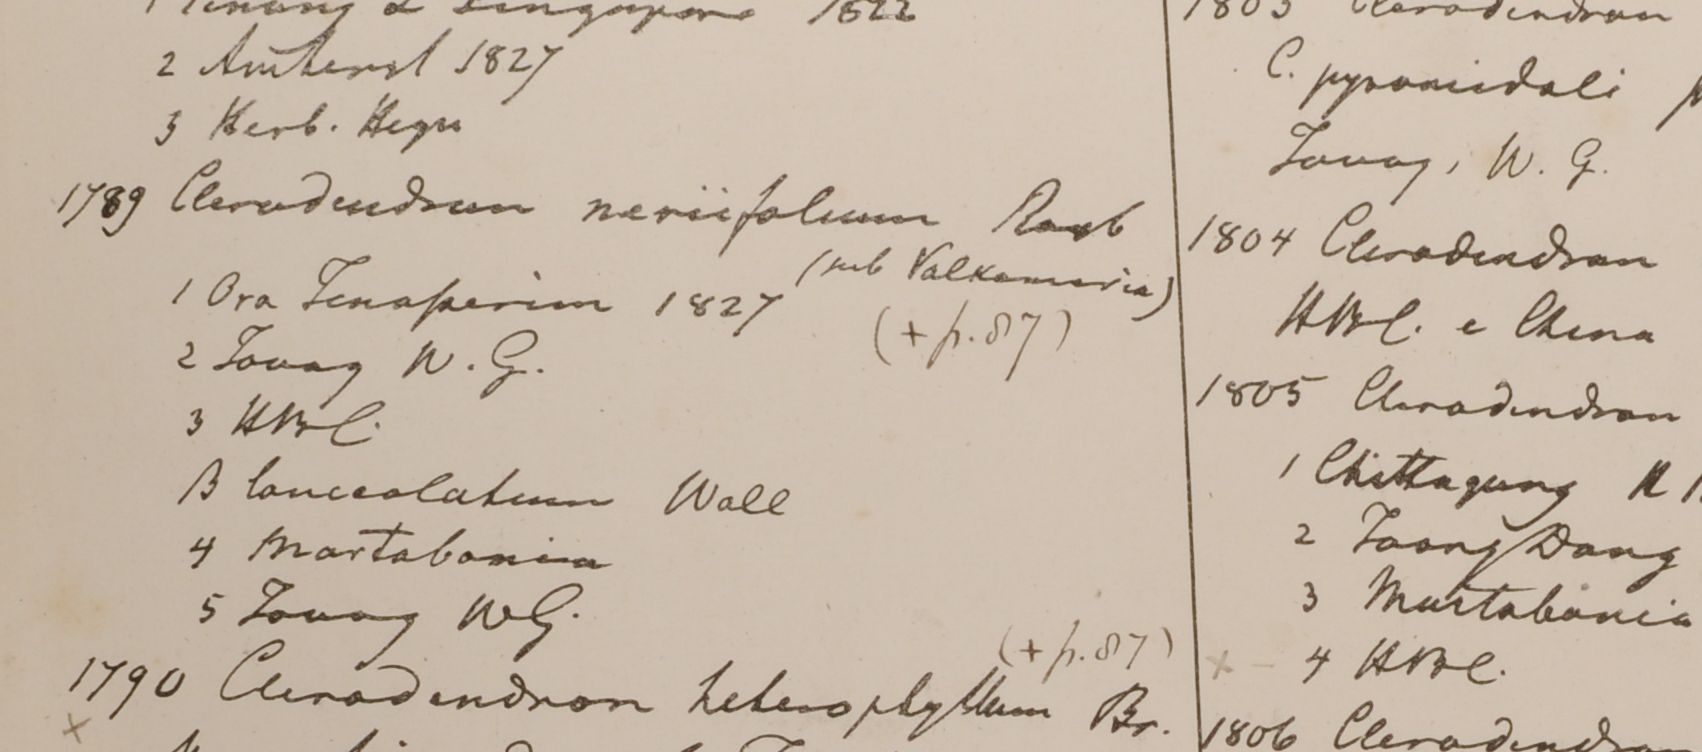 Penang & Singapore 1822
2 Amherst 1827
3 Herb. Heyn
1789 Clerodendrum neriifolium Roxb
(sub Valkameria)
1 Ora Tenasserim 1827
(+ p. 87)
2 Tavoy W. G.
3 HBC.
β lanceolatum Wall
4 Martabania
5 Tavoy WG.
(+ p. 87)
1790 Clerodendron heterophyllum Br.
x
1803 Clerodendron
C. pyramidali
Tavoy, W. G.
1804 Clerodendron
HBC. e China
1805 Clerodendron
1 Chittagung
2 Toong Dong
3 Martabania
x – 4 HBC.
1806 Clerodendron